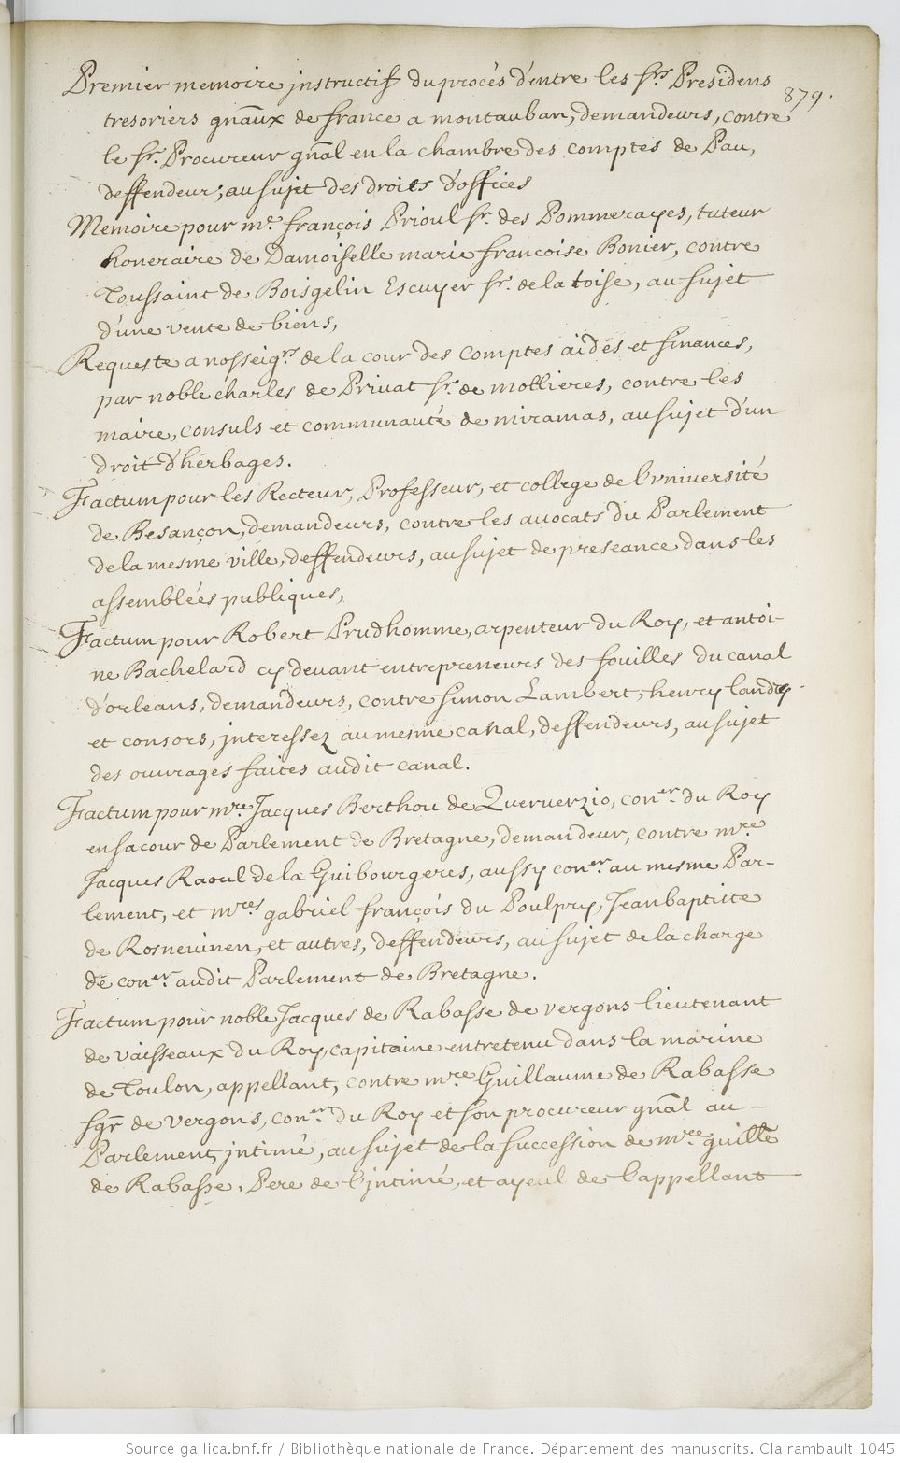 Premier memoire instructif du procés d'entre les srs Presidens
879.
tresoriers gñaux de france a montauban, demandeurs, contre
le sr. Procureur gñal en la chambre des comptes de Pau,
deffendeur, au sujet des droits d'offices
Memoire pour me. françois Prioul sr. des Pommerayes, tuteur
honeraire de Damoiselle marie francoise Bonier, contre
Toussaint de Boisgelin Escuyer sr. de la toise, au sujet
d'une vente de biens,
Requeste a nosseigrs de la cour des comptes aides et finances,
par noble charles de Privat sr. de mollieres, contre les
maire, consuls et communauté de miramas, au sujet d'un
droit d'herbages.
Factum pour les Recteur, Professeur, et college de l'vniversité
de Besançon, demandeurs, contre les avocats du Parlement
de la mesme ville, deffendeurs, au sujet de preseance dans les
assemblées publiques,
Factum pour Robert Prudhomme, arpenteur du Roy, et antoi-
ne Bachelard cy devant entrepreneurs des fouilles du canal
d'orleans, demandeurs, contre simon Lambert, henry landry
et consors, interessez au mesme canal, deffendeurs, au sujet
des ouvrages faites audit canal.
Factum pour mre. Jacques Berthou de Querverzio, coner. du Roy
en sa cour de Parlement de Bretagne, demandeur, contre mre
Jacques Raoul de la Guibourgeres, aussy coner. au mesme Par-
lement, et mres gabriel françois du Poulpry, Jean baptiste
de Rosnevinen, et autres, deffendeurs, au sujet de la charge
de coner. audit Parlement de Bretagne.
Factum pour noble Jacques de Rabasse de vergons lieutenant
de vaisseaux du Roy, capitaine entretenu dans la marine
de Toulon, appellant, contre mre Guillaume de Rabasse
sgr de vergons, coner. du Roy et son procureur gñal au
Parlement, intimé, au sujet de la succession de mre guille
de Rabasse, Pere de l'intimé, et ayeul de l'appellant
Source gallica.bnf.fr / Bibliothèque nationale de France. Département des manuscrits. Clairambault 1045